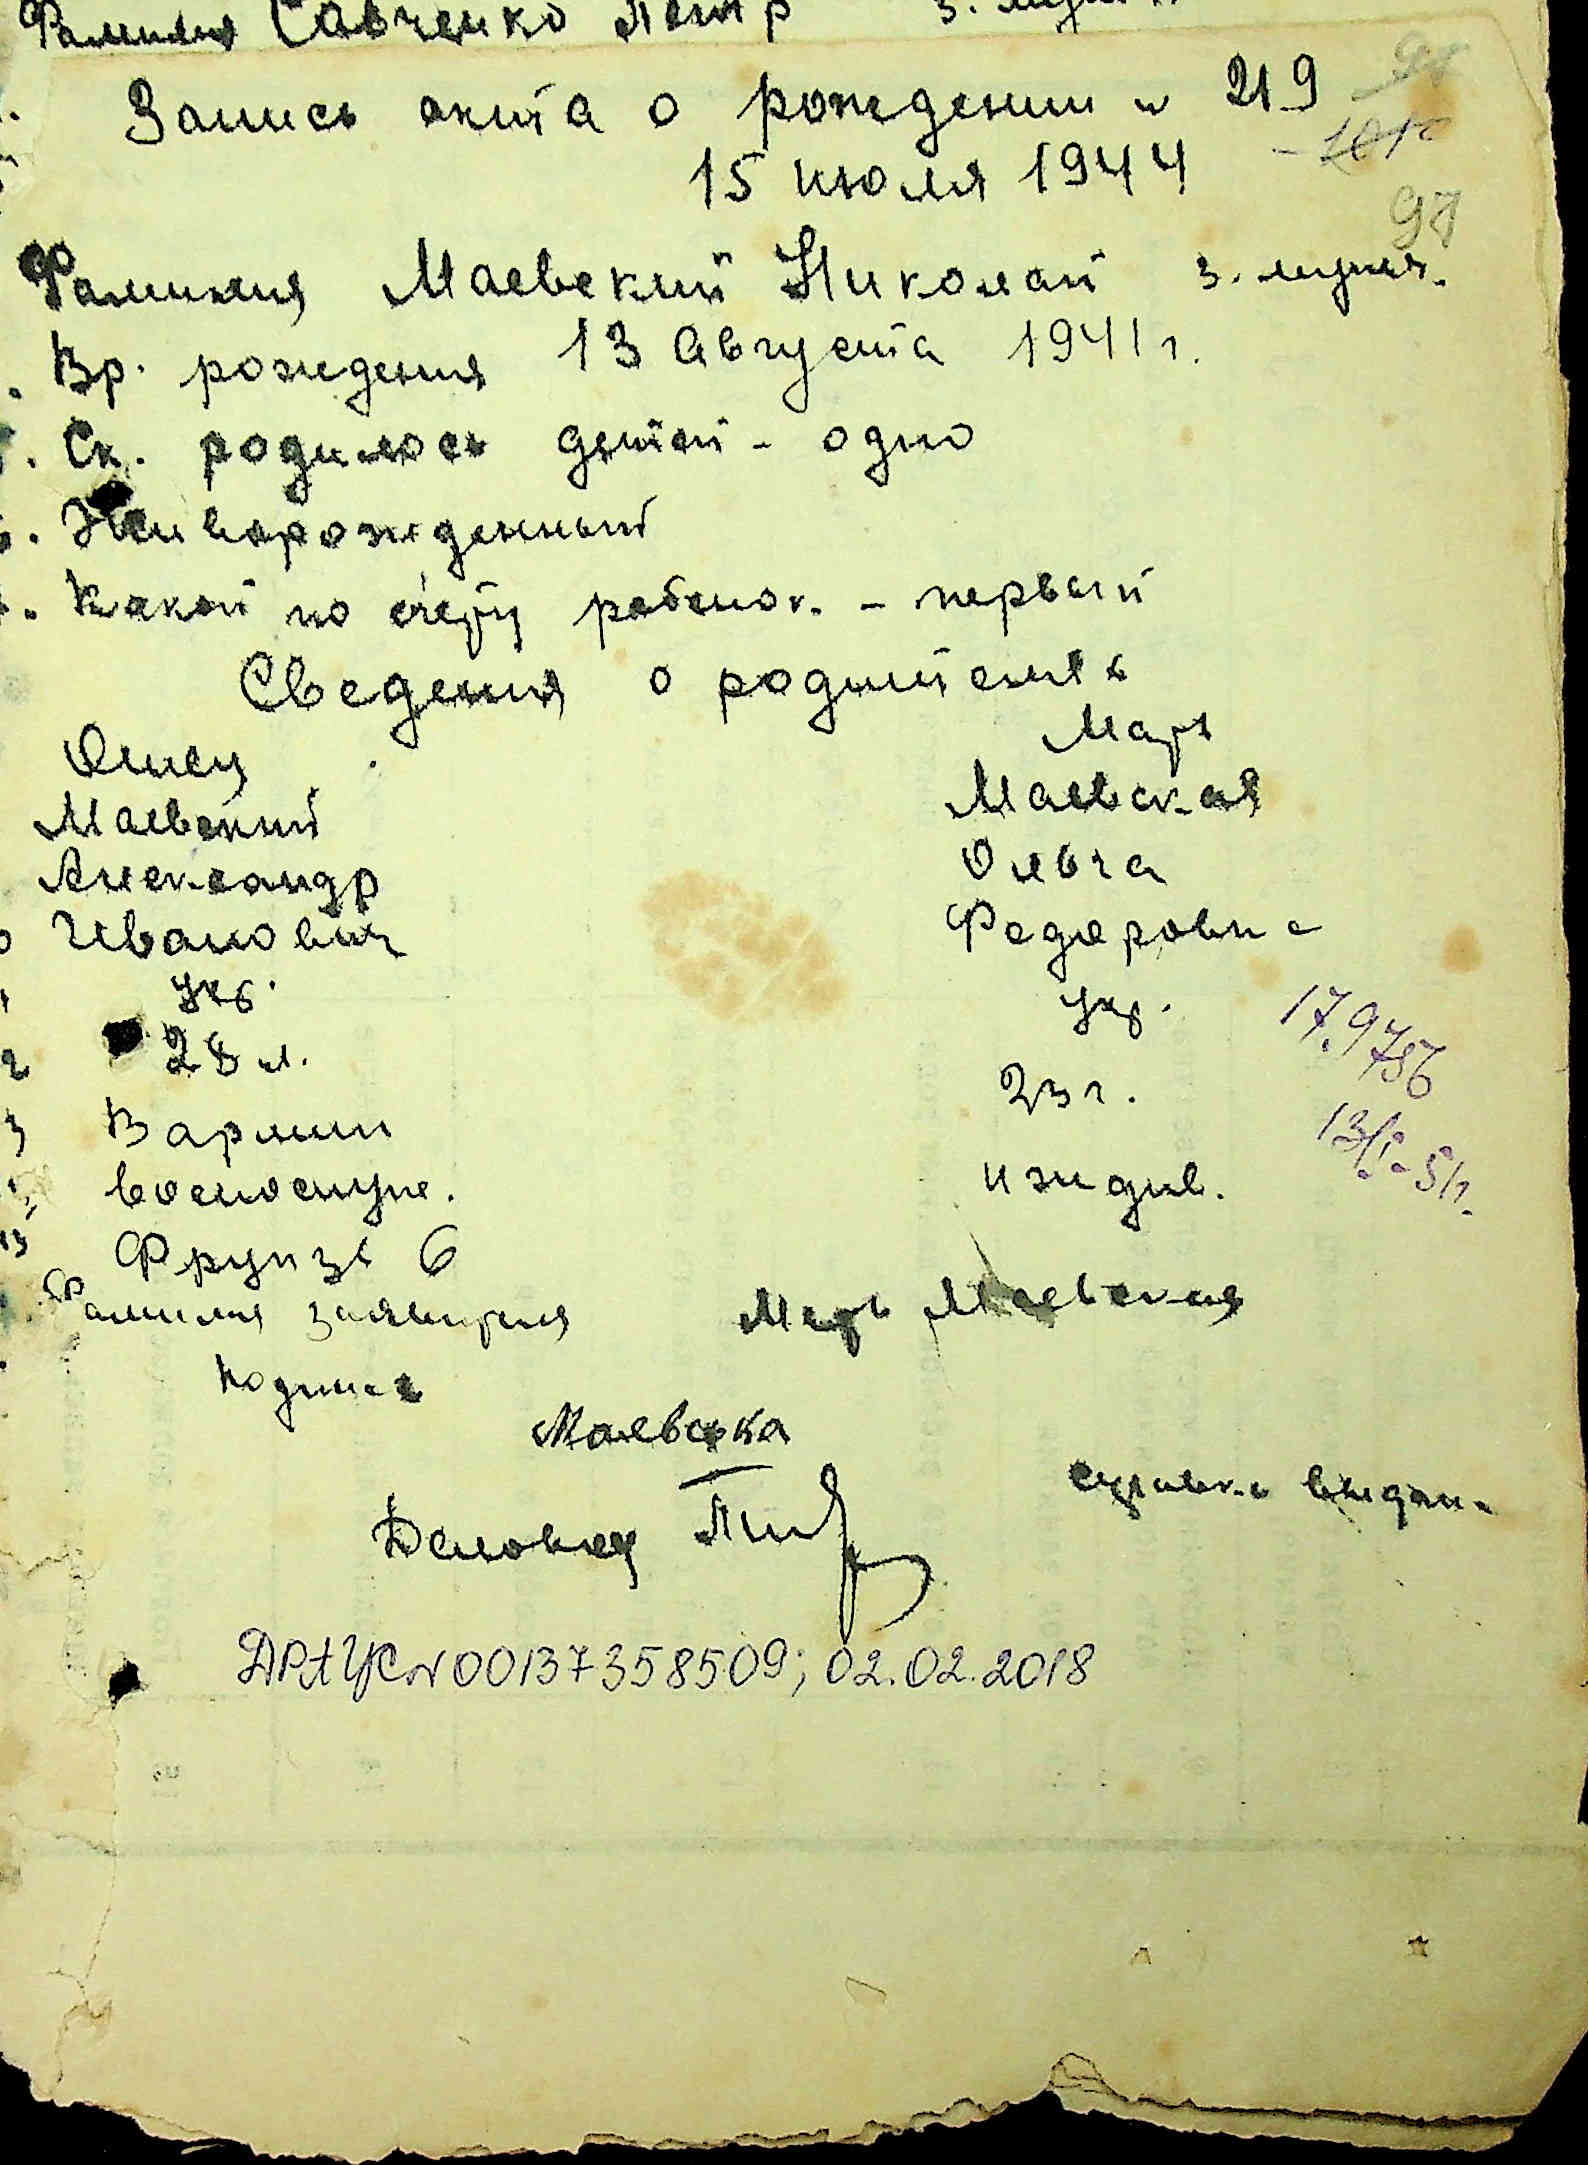 Фамилия Савченко Петр 3.
Запись акта о рождении N 219
15 июля 1944
97
Фамилия Маевский Николай 3. мужч.
Вр. рождения 13 Августа 1941 г.
Ск. родилось детей - одно
Живорожденный
Какой по счету ребенок. - первый
Сведения о родителях
Отец Мать
Маевский Маевская
Александр Ольга
Иванович Федоровна
Укр. Укр.
28 л. 23 г.
В армии
военослуж. иждив.
Фрунзе 6
Фамилия заявителя Мать Маевская
Подпись
Маевська
справка выдана
ДРАЦС N 00137358509; 02.02.2018